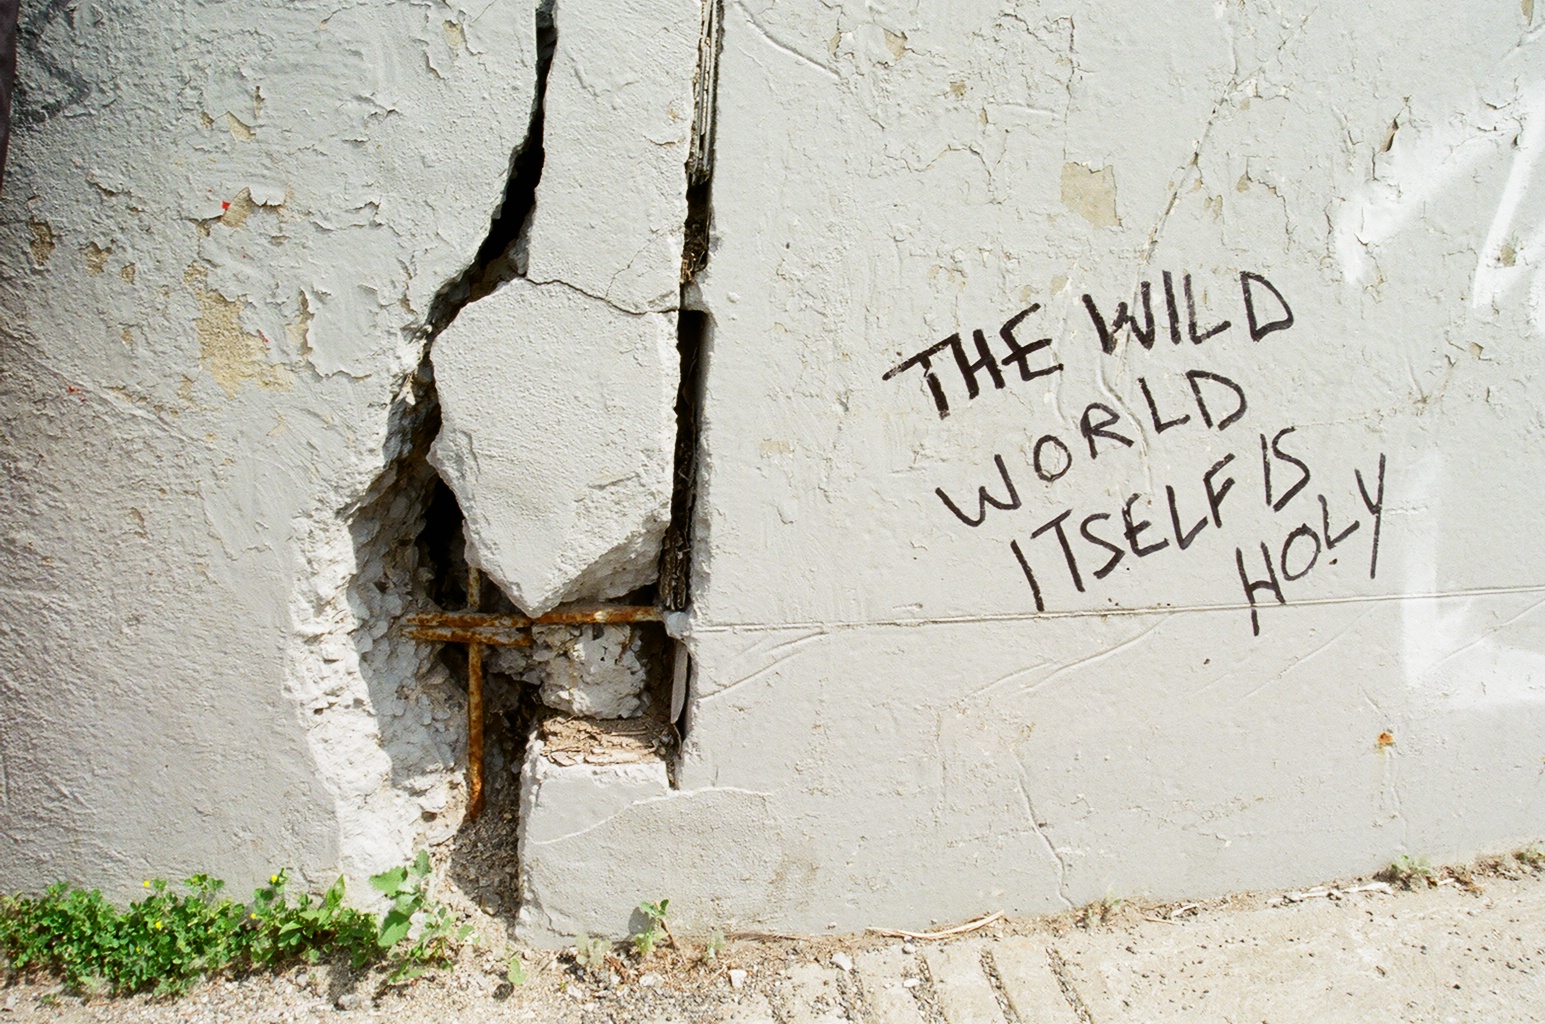 THE WILD
WORLD
ITSELF IS
HOLY